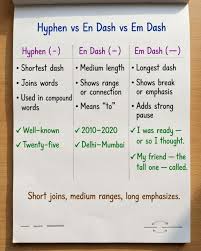 Hyphen vs En Dash vs Em Dash
Hyphen (-)
• Shortest dash
• Joins words
• Used in compound
words
✓ Well-known
✓ Twenty-five
En Dash (–)
• Medium length
• Shows range
or connection
• Means "to"
✓ 2010–2020
✓ Delhi–Mumbai
Em Dash (—)
• Longest dash
• Shows break
or emphasis
• Adds strong
pause
✓ I was ready —
or so I thought.
✓ My friend — the
tall one — called.
Short joins, medium ranges, long emphasizes.